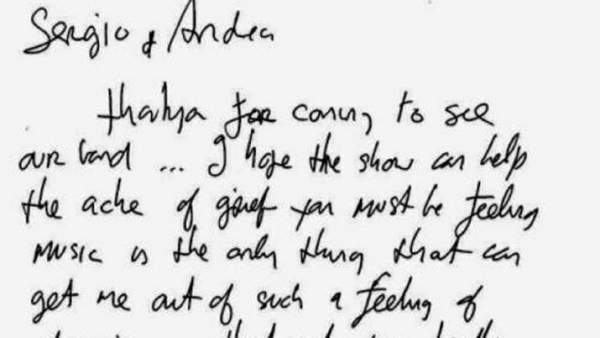 Sergio & Andrea
thankyou for coming to see
our band ... I hope the show can help
the ache of grief you must be feeling
MUSIC is the only thing that can
get me out of such a feeling of